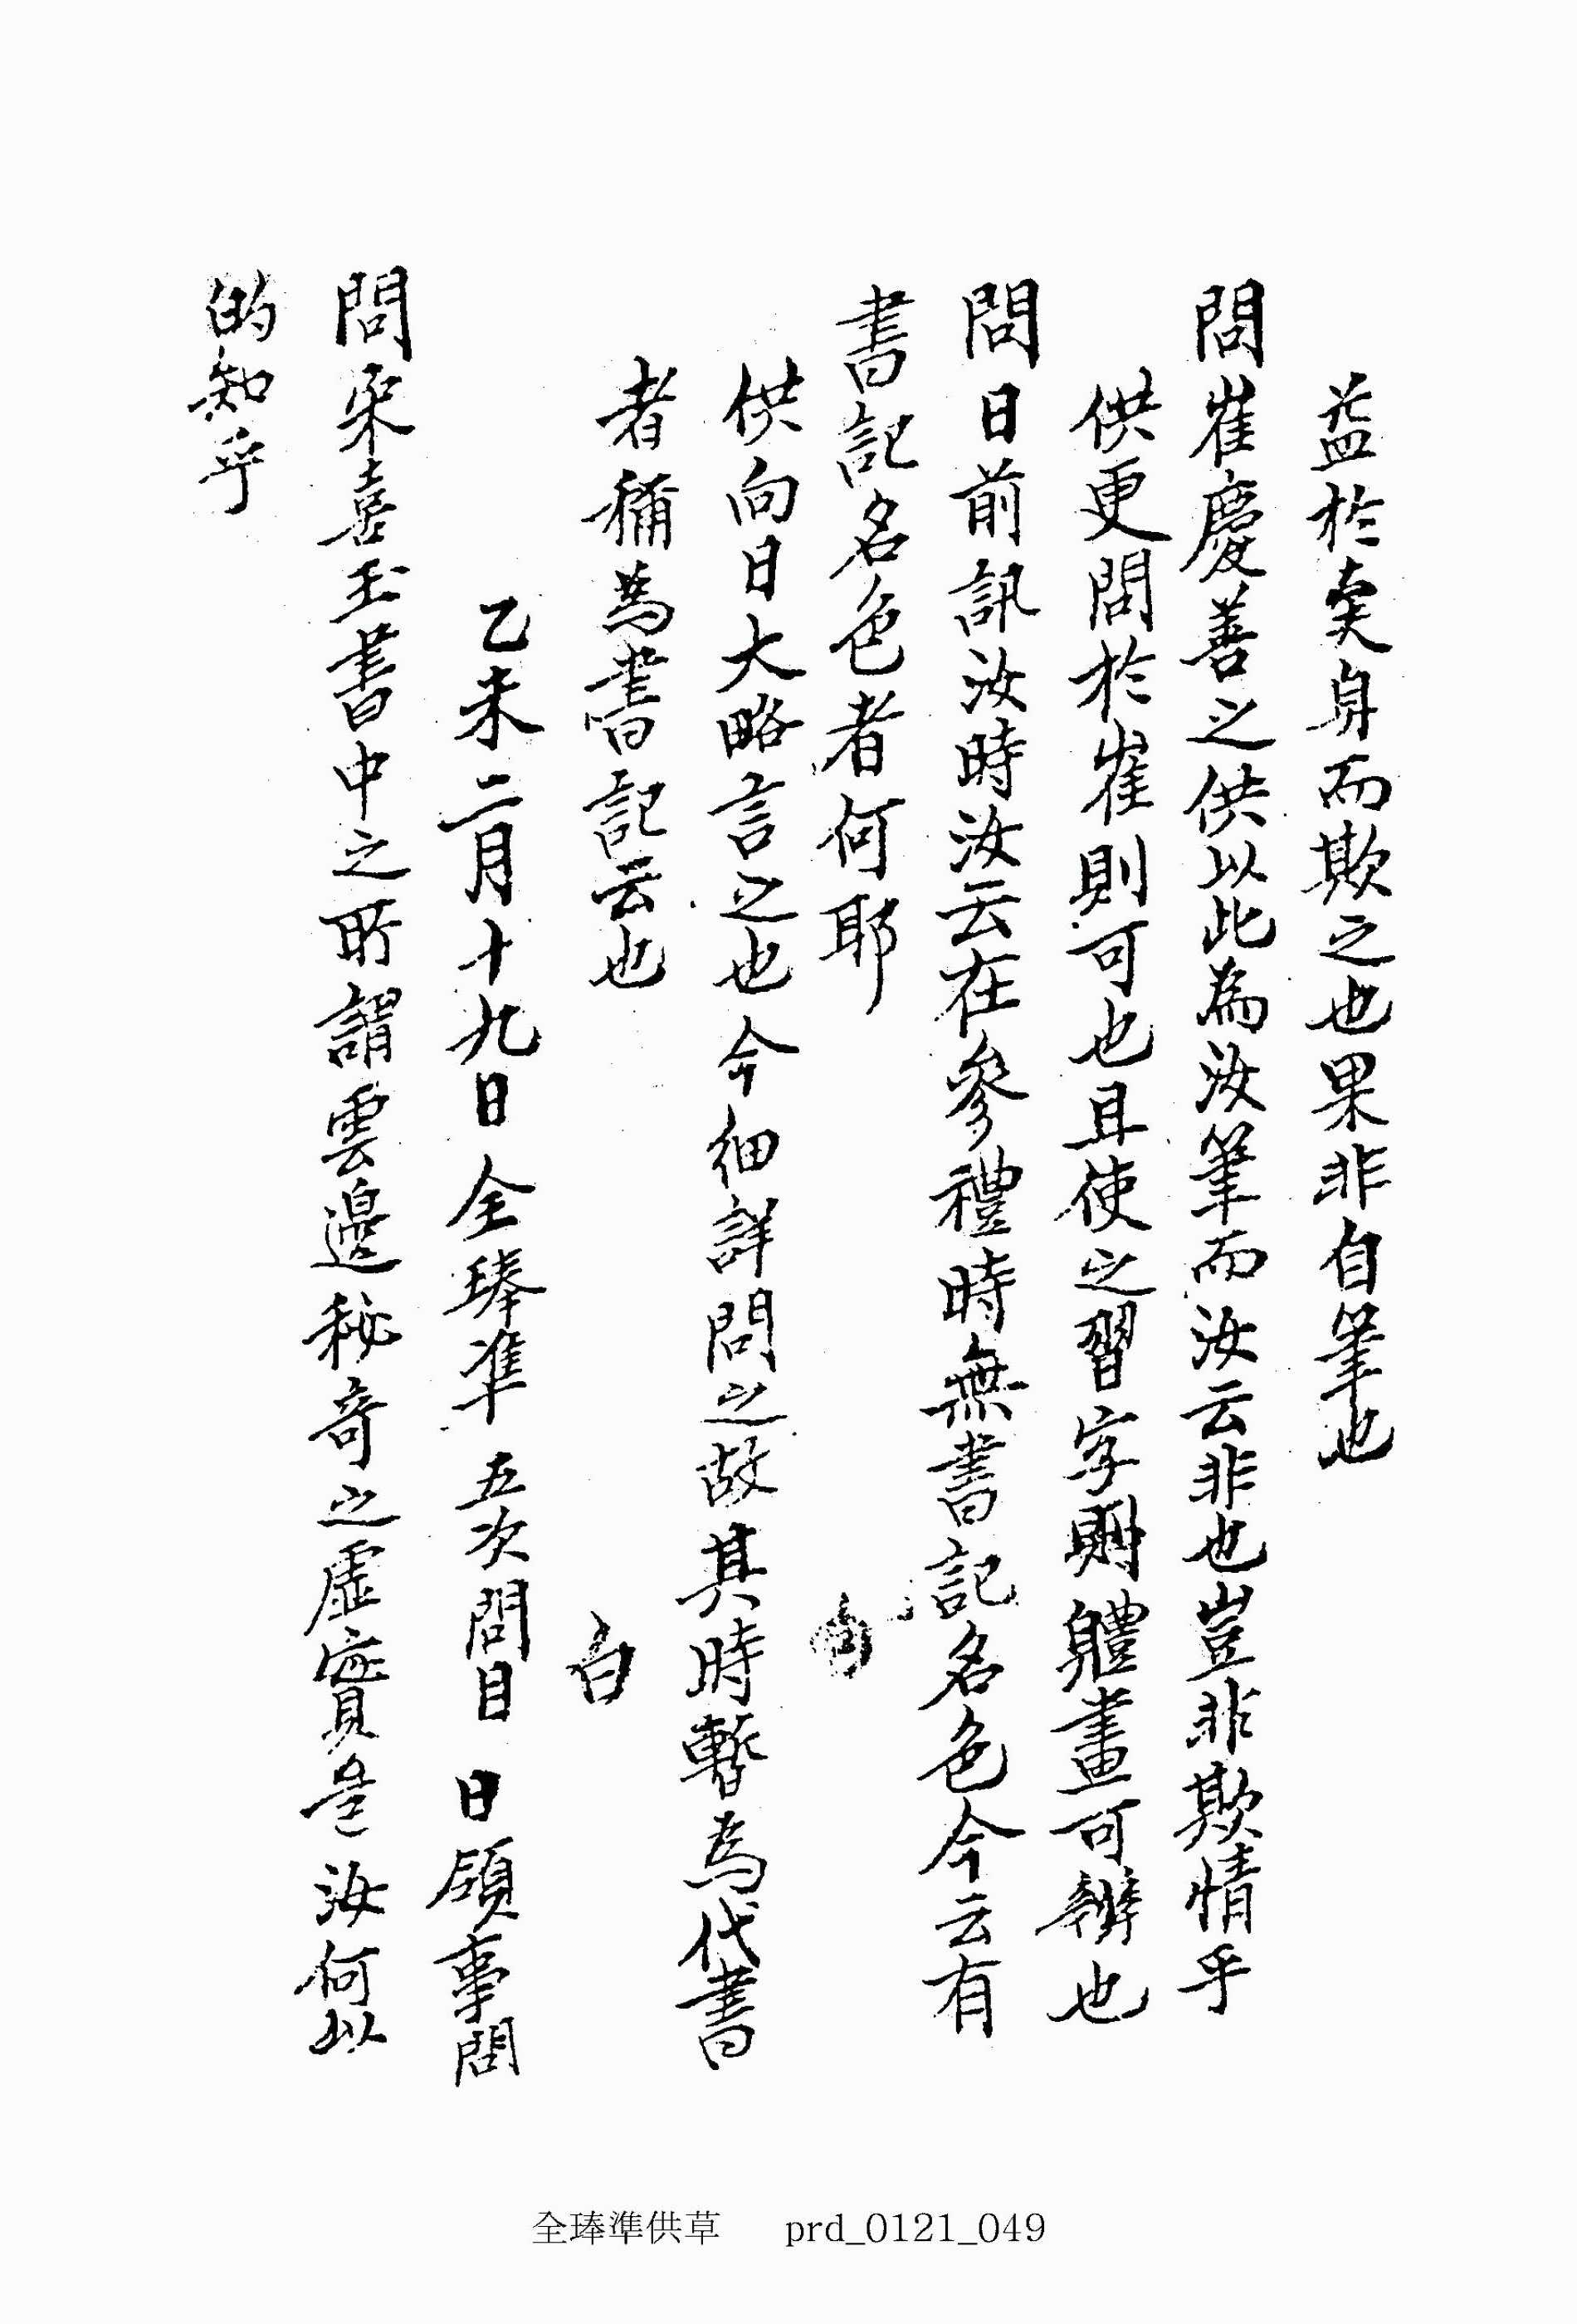 益於矣身而欺之也果非自筆也
問崔慶善之供以此為汝筆而汝云非也豈非欺情乎
供更問於崔則可也且使之習字則軆畫可辨也
問日前訊汝時汝云在參禮時無書記名色今云有
書記名色者何耶
供向日大略言之也今細詳問之故其時暫為代書
者稱為書記云也 白
乙未二月十九日全琫準五次問目 日領事問
問宋喜玉書中之所謂雲邊秘奇之虛實是汝何以
的知乎
全琫準供草 prd_0121_049